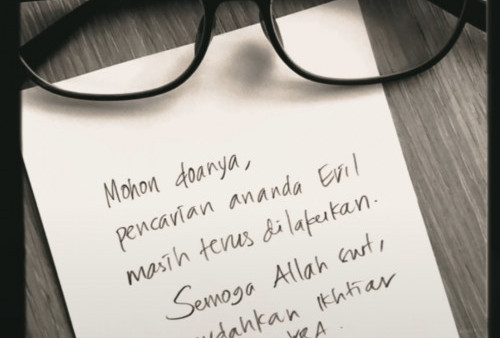 Mohon doanya,
pencarian ananda Eril
masih terus dilakukan.
Semoga Allah swt,
udahkan ikhtiar